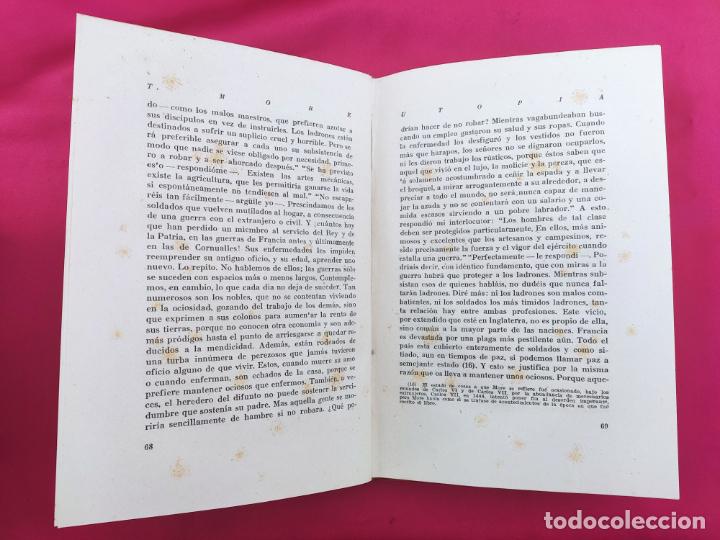 T. MORE
do — como los malos maestros, que prefieren azotar a
sus discípulos en vez de instruirles. Los ladrones están
destinados a sufrir un suplicio cruel y horrible. Pero se-
rá preferible asegurar a cada uno su subsistencia de
modo que nadie se viese obligado por necesidad, prime-
ro a robar y a ser ahorcado después." "Se ha previsto
esto — respondióme —. Existen las artes mecánicas,
existe la agricultura, que les permitiría ganarse la vida
si espontáneamente no tendiesen al mal." "No escapa-
réis tan fácilmente — argüíle yo —. Prescindamos de los
soldados que vuelven mutilados al hogar, a consecuencia
de una guerra con el extranjero o civil. Y ¡cuántos hoy
que han perdido un miembro al servicio del Rey y de
la Patria, en las guerras de Francia antes y últimamente
en las de Cornualles! Sus enfermedades les impiden
reemprender su antiguo oficio, y su edad, aprender uno
nuevo. Lo repito. No hablemos de ellos; las guerras sólo
se suceden en espacios más o menos largos. Contemple-
mos, en cambio, lo que cada día no deja de suceder. Tan
numerosos son los nobles, que no se contentan viviendo
en la ociosidad, gozando del trabajo de los demás, sino
que exprimen a sus colonos para aumentar la renta de
sus tierras, porque no conocen otra economía y son ade-
más pródigos hasta el punto de arriesgarse a quedar re-
ducidos a la mendicidad. Además, están rodeados de
una turba innúmera de perezosos que jamás tuvieron
oficio alguno de que vivir. Estos, cuando muere su amo
o cuando enferman, son echados de la casa, porque se
prefiere mantener ociosos que enfermos. También, a ve-
ces, el heredero del difunto no puede sostener la servi-
dumbre que sostenía su padre. Mas aquella gente se mo-
riría sencillamente de hambre si no robara. ¿Qué po-
68
UTOPIA
drían hacer de no robar? Mientras vagabundeaban bus-
cando un empleo gastaron su salud y sus ropas. Cuando
la enfermedad los desfiguró y los vestidos no fueron
más que harapos, los señores no se dignaron ocuparlos,
ni les dieron trabajo los rústicos, porque éstos saben que
aquel que vivió en el lujo, la molicie y la pereza, que es-
tá solamente acostumbrado a ceñir la espada y a llevar
el broquel, a mirar arrogantemente a su alrededor, a des-
preciar a todo el mundo, no será nunca capaz de mane-
jar la azada y no se contentará con un salario y una co-
mida escasos sirviendo a un pobre labrador." A esto
respondió mi interlocutor: "Los hombres de tal clase
deben ser protegidos particularmente. En ellos, más ani-
mosos y excelentes que los artesanos y campesinos, re-
side precisamente la fuerza y el vigor del ejército cuando
estalla una guerra." "Perfectamente — le respondí —. Po-
dríais decir, con idéntico fundamento, que con miras a la
guerra habrá que proteger a los ladrones. Mientras subsis-
tan esos de quienes habláis, no dudéis que nunca faltarán
ladrones. Diré más: ni los ladrones son malos comba-
tientes, ni los soldados los más tímidos ladrones, tanta
relación hay entre ambas profesiones. Este vicio,
por extendido que esté en Inglaterra, no es propio de ella,
sino común a la mayor parte de las naciones. Francia
es devastada por una plaga más pestilente aún. Todo el
país está cubierto enteramente de soldados y como si-
tiado, aun en tiempos de paz, si podemos llamar paz a
semejante estado (16). Y esto se justifica por la misma
razón que os lleva a mantener unos ociosos. Porque aque-
69
todocoleccion
todocoleccion.net